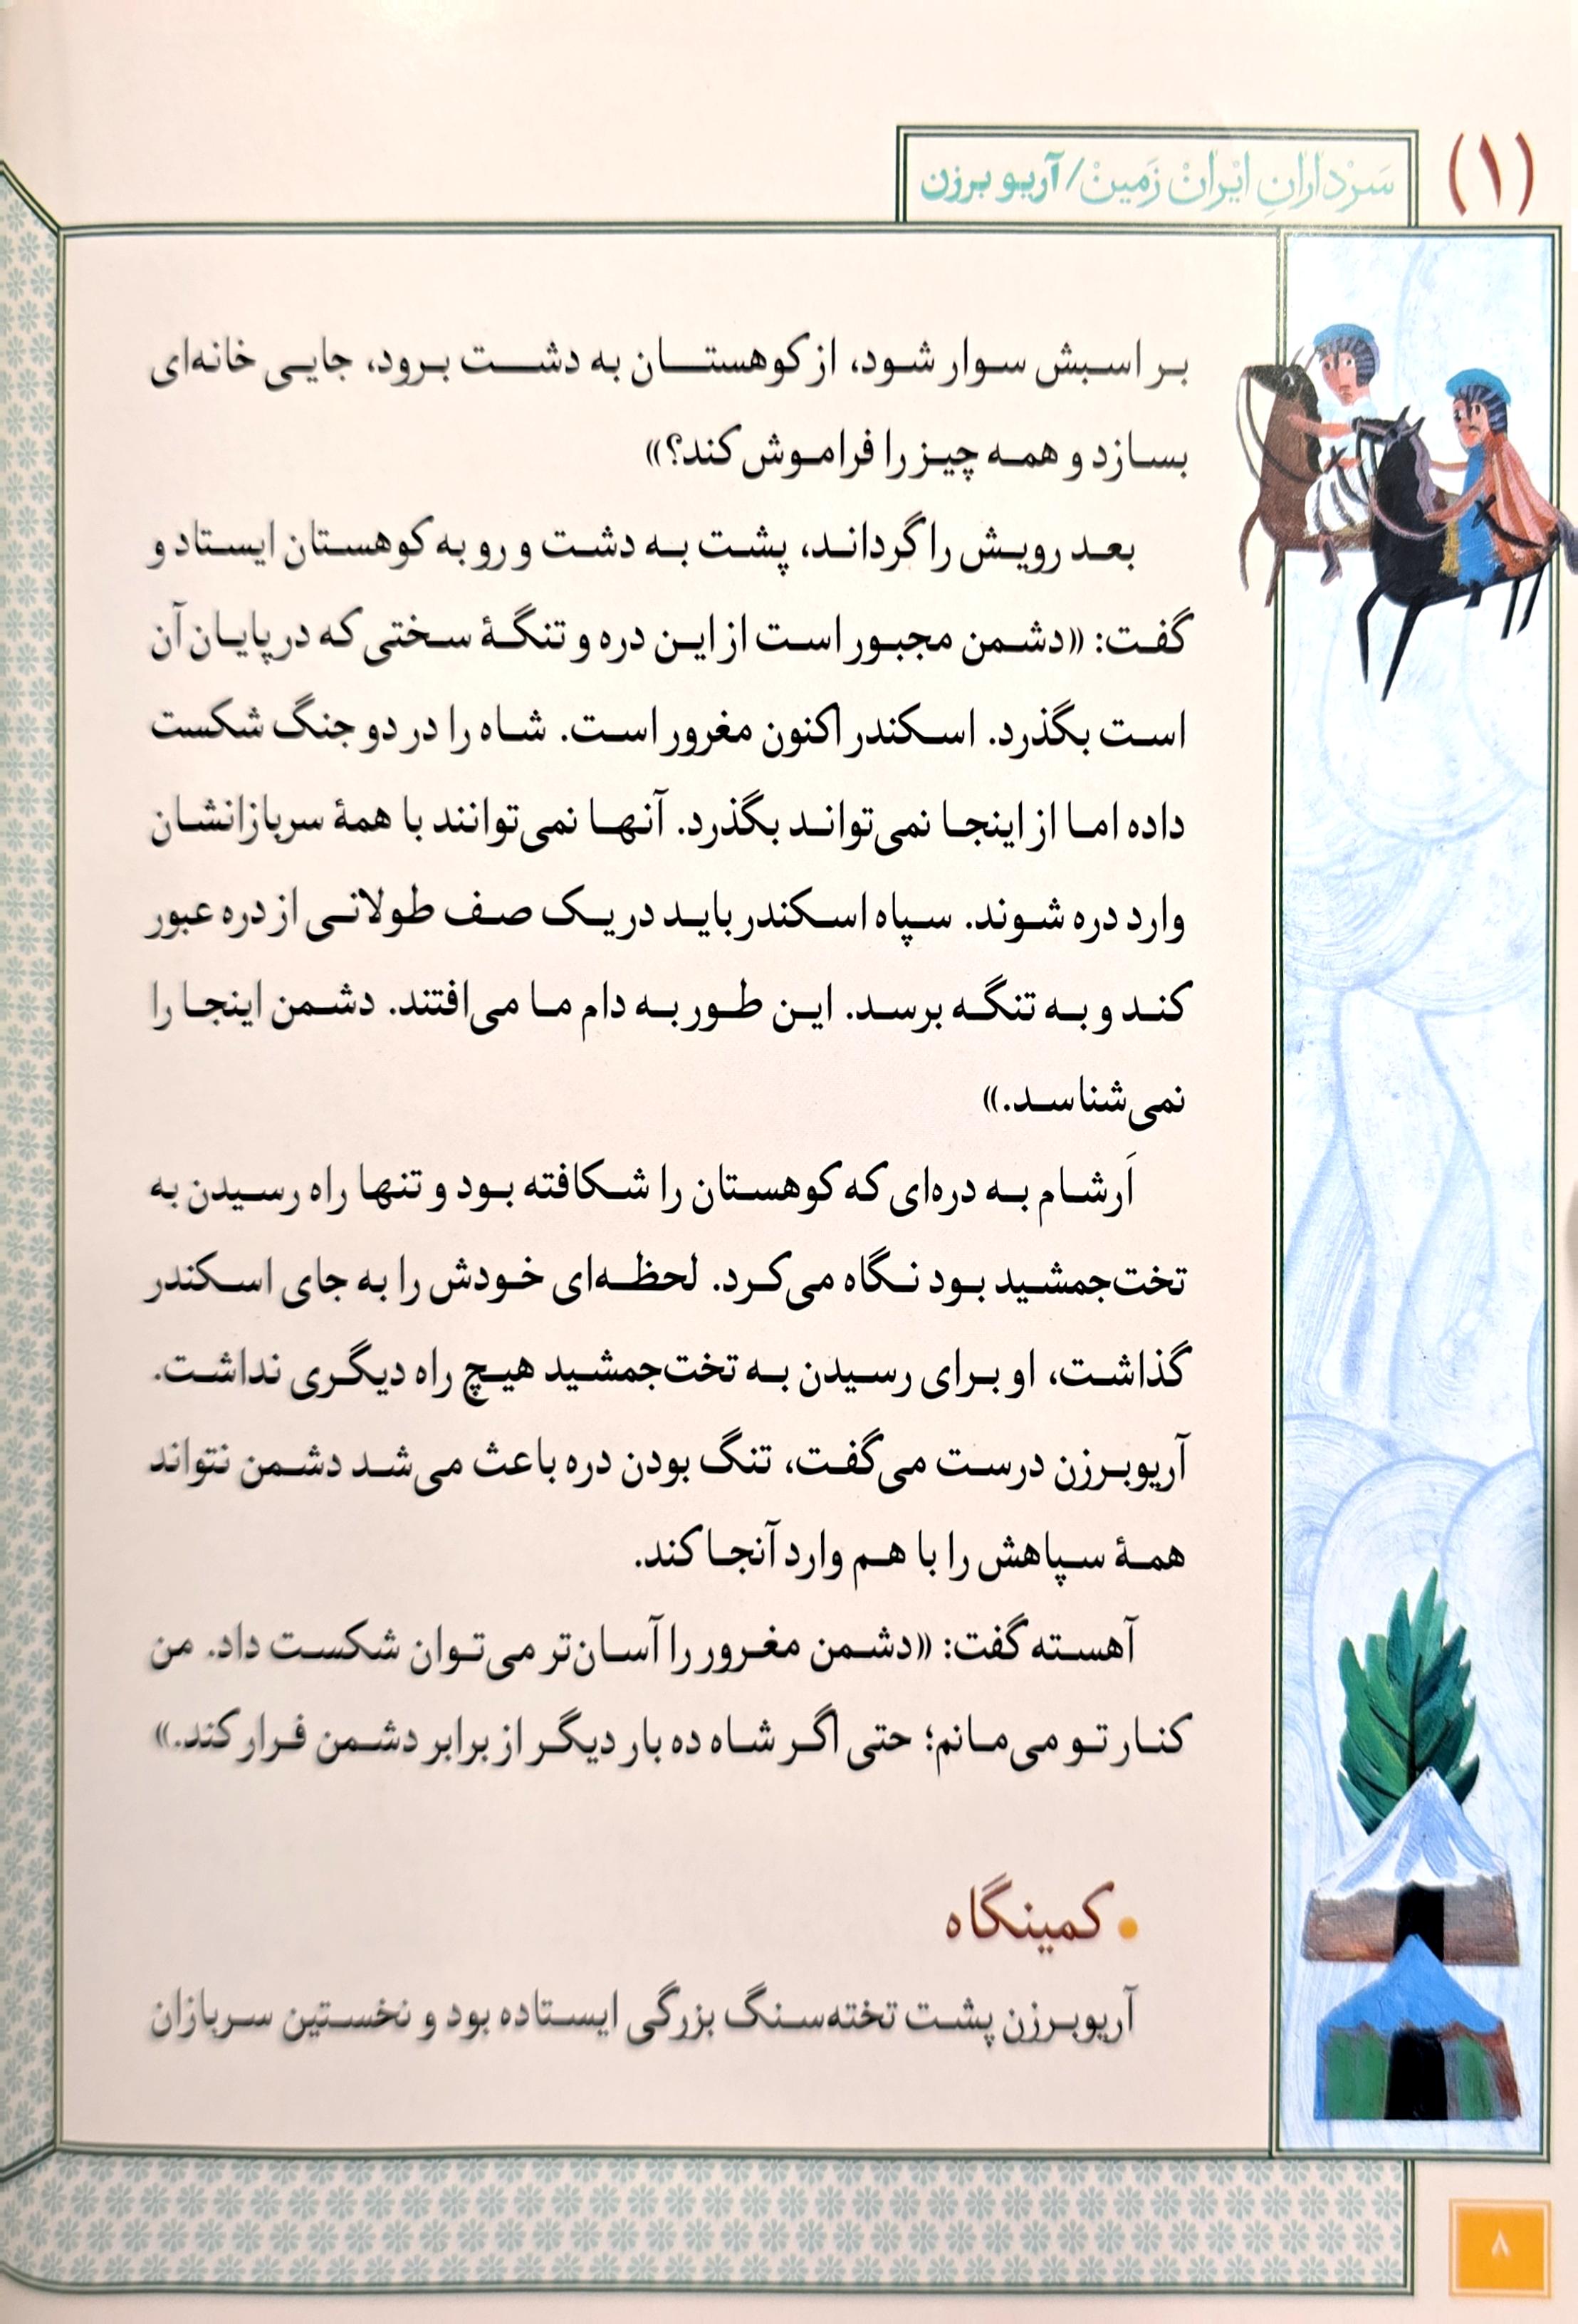 (۱)
سَرْدارانِ ایْرانْ زَمینْ/آریو برزن
بر اسبش سوار شود، از کوهستان به دشت برود، جایی خانه‌ای
بسازد و همه چیز را فراموش کند؟»
بعد رویش را گرداند، پشت به دشت و رو به کوهستان ایستاد و
گفت: «دشمن مجبور است از این دره و تنگهٔ سختی که در پایان آن
است بگذرد. اسکندر اکنون مغرور است. شاه را در دو جنگ شکست
داده اما از اینجا نمی‌تواند بگذرد. آنها نمی‌توانند با همهٔ سربازانشان
وارد دره شوند. سپاه اسکندر باید در یک صف طولانی از دره عبور
کند و به تنگه برسد. این طور به دام ما می‌افتند. دشمن اینجا را
نمی‌شناسد.»
اَرشام به دره‌ای که کوهستان را شکافته بود و تنها راه رسیدن به
تخت‌جمشید بود نگاه می‌کرد. لحظه‌ای خودش را به جای اسکندر
گذاشت، او برای رسیدن به تخت‌جمشید هیچ راه دیگری نداشت.
آریوبرزن درست می‌گفت، تنگ بودن دره باعث می‌شد دشمن نتواند
همهٔ سپاهش را با هم وارد آنجا کند.
آهسته گفت: «دشمن مغرور را آسان‌تر می‌توان شکست داد. من
کنار تو می‌مانم؛ حتی اگر شاه ده بار دیگر از برابر دشمن فرار کند.»
• کمینگاه
آریوبرزن پشت تخته‌سنگ بزرگی ایستاده بود و نخستین سربازان
۸